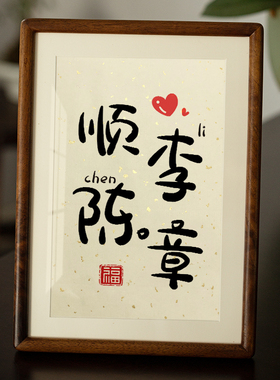 顺
li
李
chen
陈。
章
福